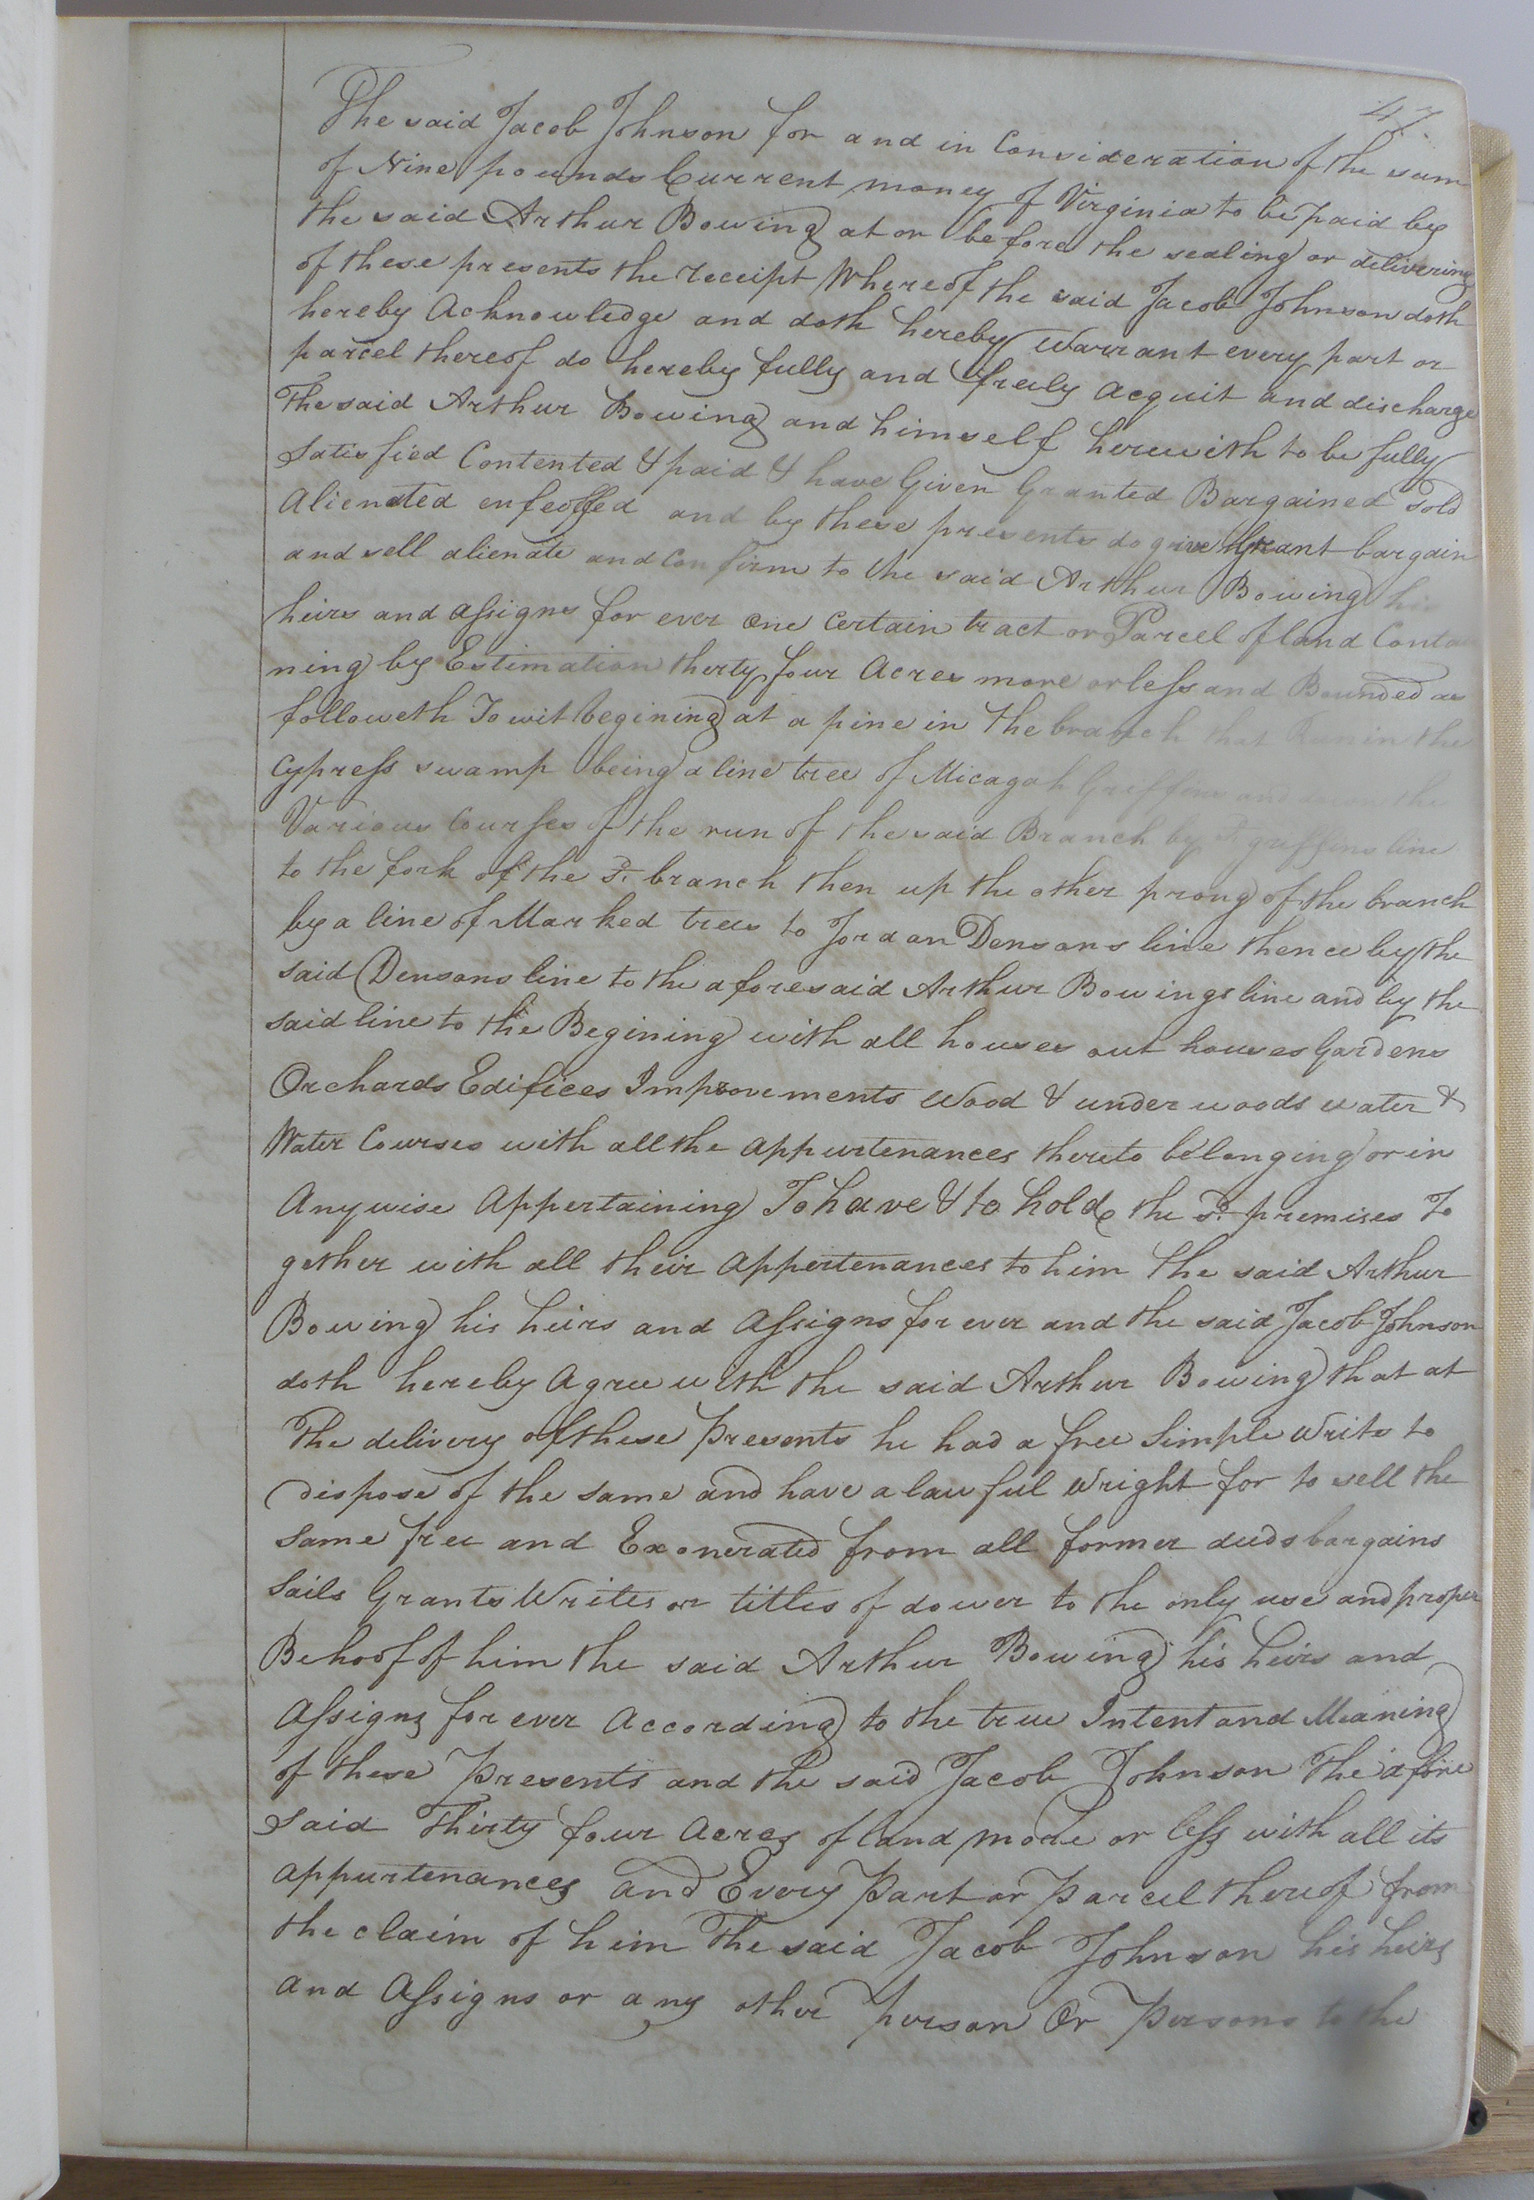 47.
The said Jacob Johnson for and in Consideration of the sum
of Nine pounds Current money of Virginia to be paid by
the said Arthur Bowing at or before the sealing or delivering
of these presents the receipt Whereof the said Jacob Johnson doth
hereby Acknowledge and doth hereby Warrant every part or
parcel thereof do hereby fully and freely Acquit and discharge
The said Arthur Bowing and himself herewith to be fully
Satisfied Contented & paid & have Given Granted Bargained Sold
Alienated enfeoffed and by these presents do give Grant bargain
and sell alienate and Confirm to the said Arthur Bowing his
heirs and assigns for ever one Certain tract or Parcel of land Contai
ning by Estimation thirty four Acres more or less and Bounded as
followeth To wit begining at a pine in the branch that Run in the
Cypress swamp being a line tree of Micagah Griffins and the
Various Courses of the run of the said Branch by Sd. griffins line
to the fork of the Sd. branch then up the other prong of the branch
by a line of Marked trees to Jordan Densons line thence by the
said Densons line to the aforesaid Arthur Bowings line and by the
said line to the Begining with all houses out houses Gardens
Orchards Edifices Improvements Wood & under woods water &
Water Courses with all the appurtenances thereto belonging or in
Anywise Appertaining To have & to hold the Sd. premises To
gether with all their Appertenances to him the said Arthur
Bowing his heirs and Assigns for ever and the said Jacob Johnson
doth hereby Agree with the said Arthur Bowing that at
The delivery of these Presents he had a free Simple Write to
dispose of the same and have a lawful Wright for to sell the
Same free and Exonerated from all former deeds bargains
Sails Grants Writes or titles of dower to the only use and proper
Behoof of him the said Arthur Bowing his heirs and
Assigns for ever According to the true Intent and Meaning
of these Presents and the said Jacob Johnson The afore
Said Thirty four Acres of land more or less with all its
appurtenances and Every Part or Parcel thereof from
the claim of him The said Jacob Johnson his heirs
and Assigns or any other person Or Persons to the